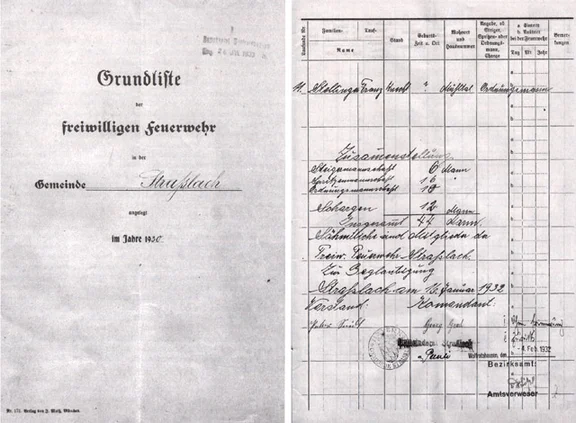 Grundliste
der
freiwilligen Feuerwehr
in der
Gemeinde Straßlach
angelegt
im Jahre 1930
Nr. 171. Verlag von J. Maiß, München.
Laufende Nr.
Familien- Tauf-
Name
Stand
Geburts-
Zeit u. Ort
Wohnort
und
Hausnummer
Angabe, ob
Steiger,
Spritzen- oder
Ordnungs-
mann,
Charge
a Eintritt
b. Austritt
bei der Feuerwehr
Tag Mt. Jahr
Bemer-
kungen
Franz ? Mühltal Ordnungsmann
Zusammenstellung
Steigermannschaft 6 Mann
Spritzenmannschaft 16
Ordnungsmannschaft 10
Chargen 12 Mann
Insgesamt 44 Mann.
Sämtliche sind Mitglieder der
Freiw. Feuerwehr Straßlach.
Zur Beglaubigung
Straßlach am 16 Januar 1932
Vorstand. Komendant
Georg
Wolfratshausen, den -4. Feb. 1932
Bezirksamt:
Amtsverweser